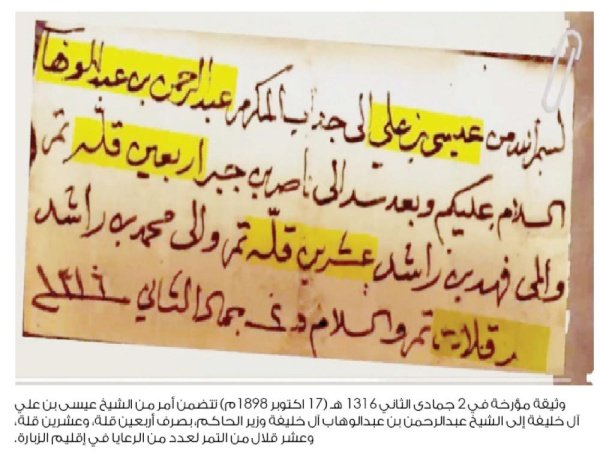 لسم الله من عيسى بن علي الى جناب المكرم عبدالرحمن بن عبدالوهاب
السلام عليكم وبعد سد الى ناصر بن جبر اربعين قلة تمر
والى فهد بن راشد عشرين قلة تمر والى محمد بن راشد
قلات تمر والسلام في جماد الثاني ١٣١٦
وثيقة مؤرخة في 2 جمادى الثاني 1316 هـ (17 اكتوبر 1898م) تتضمن أمر من الشيخ عيسى بن علي
آل خليفة إلى الشيخ عبدالرحمن بن عبدالوهاب آل خليفة وزير الحاكم، بصرف أربعين قلة، وعشرين قلة،
وعشر قلال من التمر لعدد من الرعايا في إقليم الزبارة.